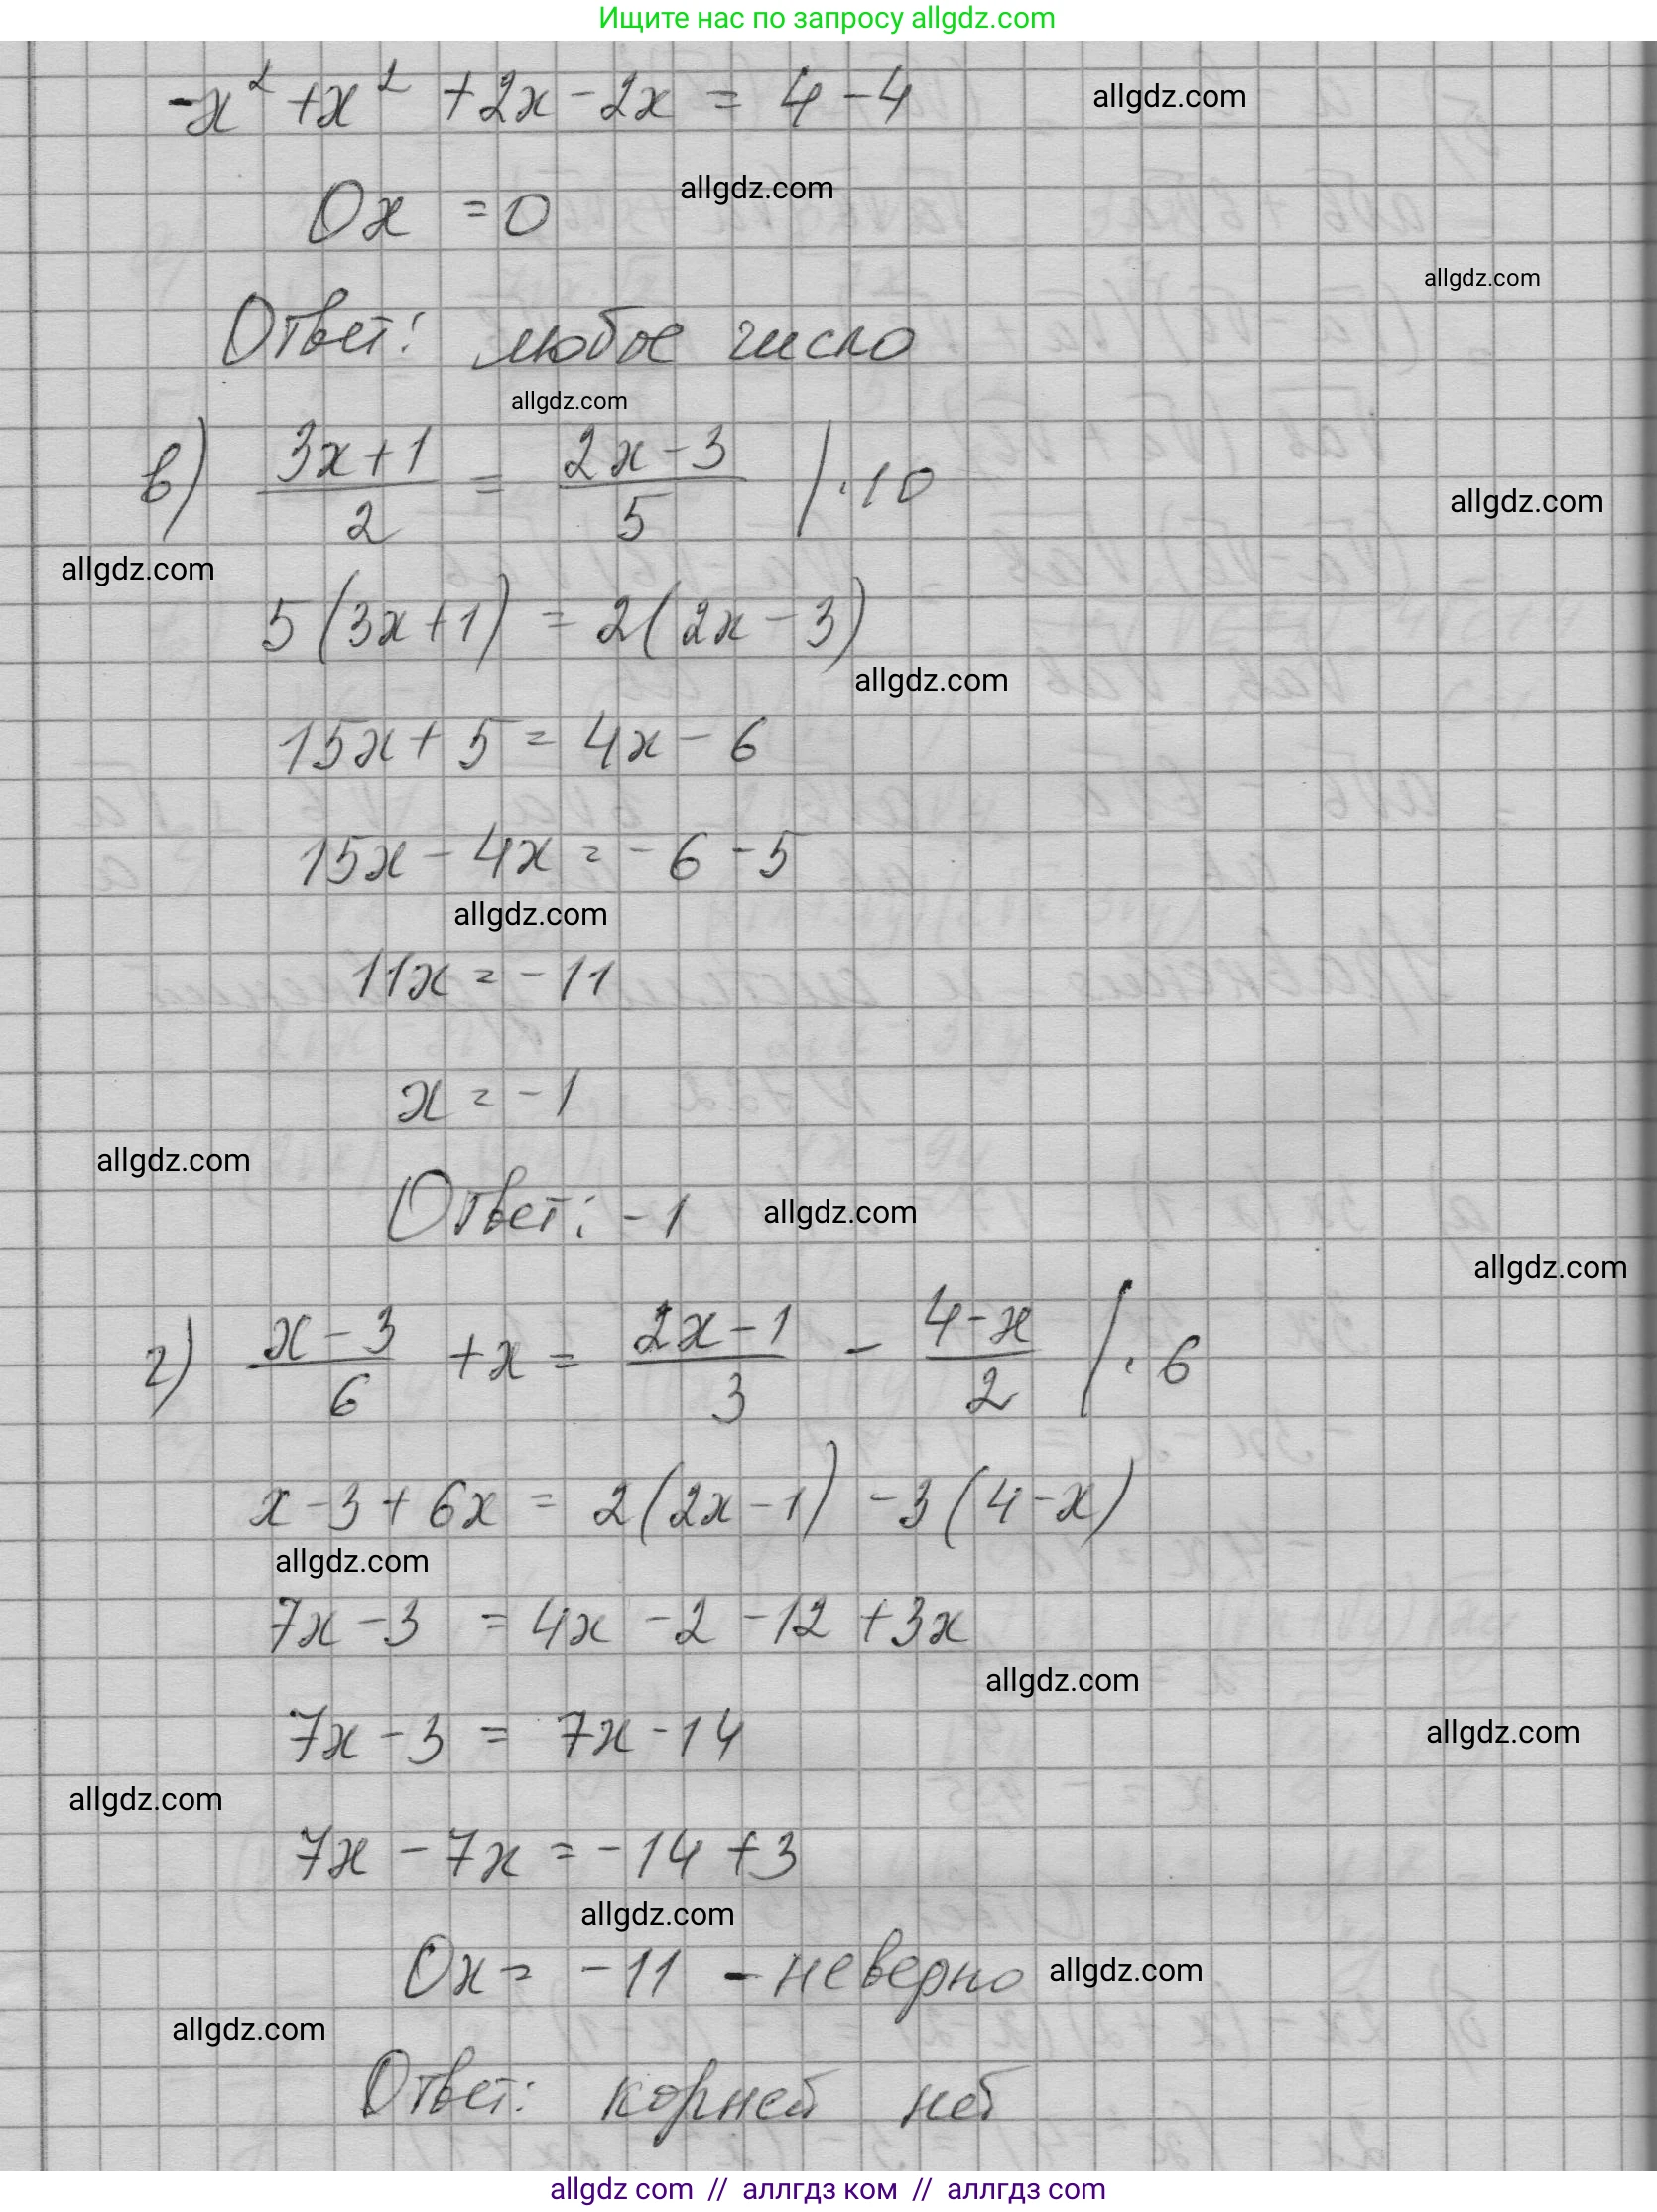 Ищите нас по запросу allgdz.com
-x² + x² + 2x - 2x = 4 - 4
allgdz.com
0x = 0
allgdz.com
allgdz.com
Ответ: любое число
allgdz.com
в) (3x+1)/2 = (2x-3)/5 / · 10
allgdz.com
allgdz.com
5(3x+1) = 2(2x-3)
allgdz.com
15x + 5 = 4x - 6
15x - 4x = -6 - 5
allgdz.com
11x = -11
x = -1
allgdz.com
Ответ: -1
allgdz.com
allgdz.com
г) (x-3)/6 + x = (2x-1)/3 - (4-x)/2 / · 6
x - 3 + 6x = 2(2x-1) - 3(4-x)
allgdz.com
7x - 3 = 4x - 2 - 12 + 3x
allgdz.com
7x - 3 = 7x - 14
allgdz.com
allgdz.com
7x - 7x = -14 + 3
allgdz.com
0x = -11 - неверно
allgdz.com
allgdz.com
Ответ: корней нет
allgdz.com // аллгдз ком // аллгдз com